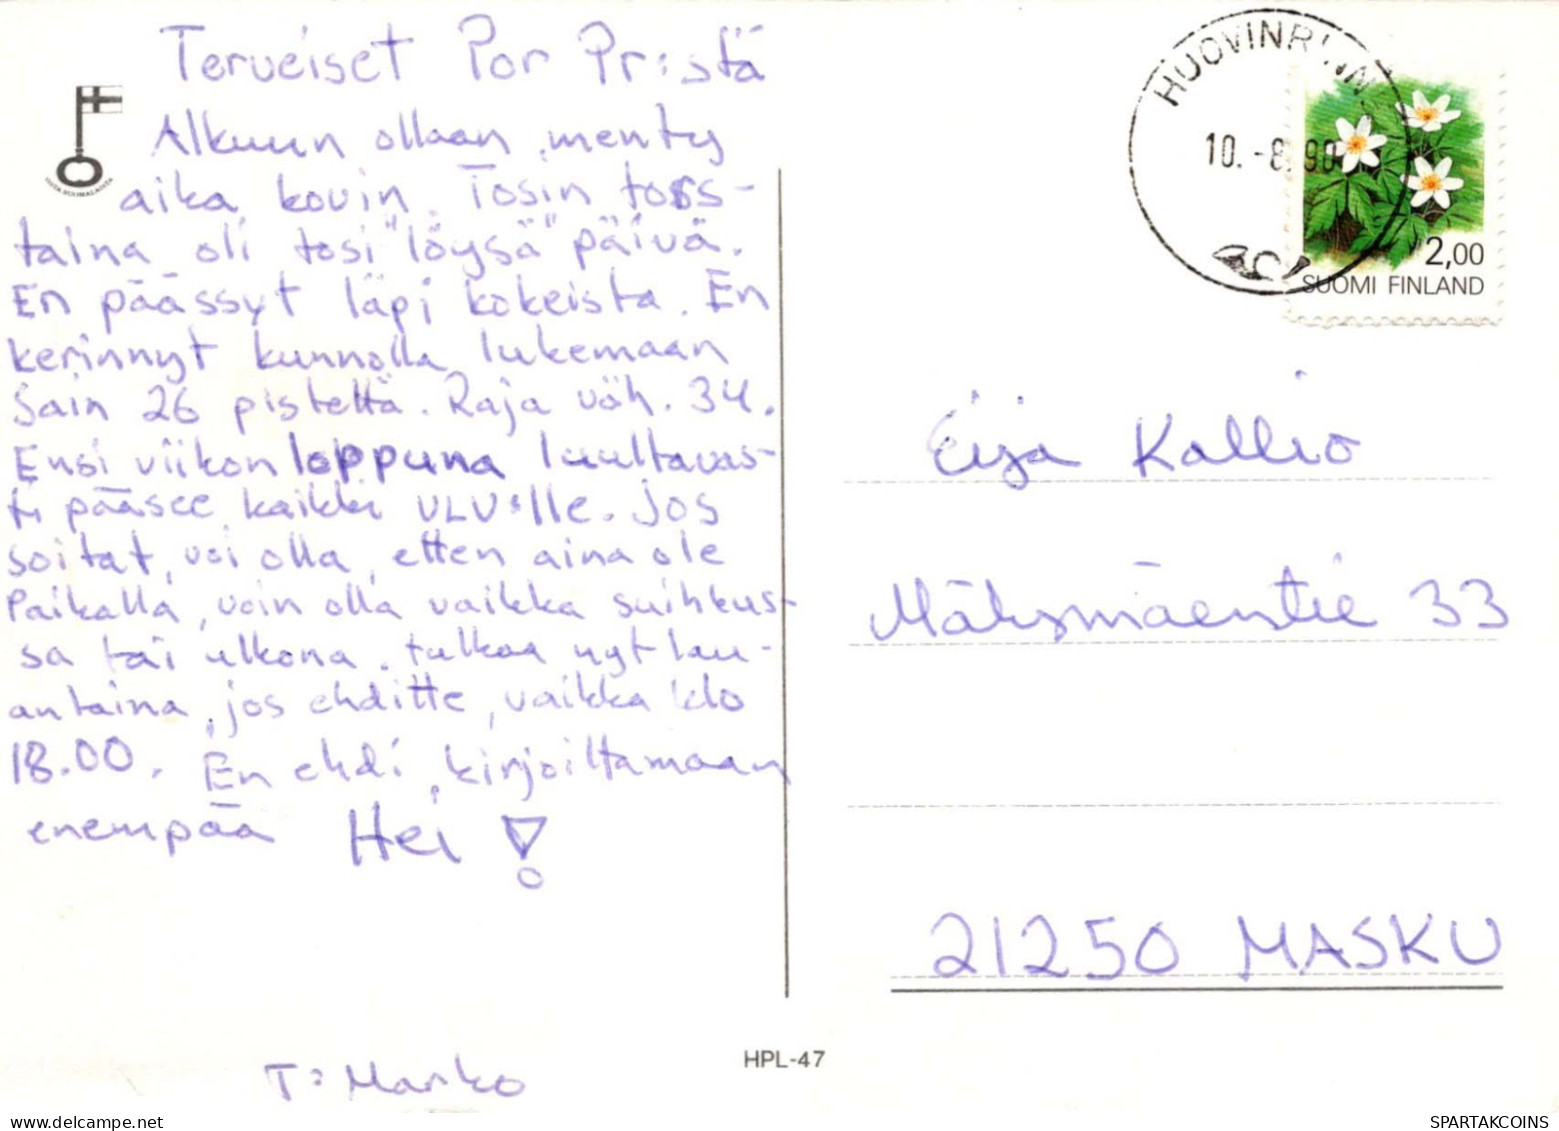 Terveiset Por Pr:stä
Alkuun ollaan menty
aika kovin. Tosin tors-
taina oli tosi "löysä" päivä.
En päässyt läpi kokeista. En
kerinnyt kunnolla lukemaan
Sain 26 pistettä. Raja väh. 34.
Ensi viikon loppuna luultavas-
ti pääsee kaikki VLV:lle. Jos
soitat, voi olla, etten aina ole
Paikalla, voin olla vaikka suihkus-
sa tai ulkona. tulkaa nyt lau-
antaina, jos ehditte, vaikka klo
18.00. En ehdi kirjoittamaan
enempää Hei!
T: Marko
HPL-47
HUOVINRINNE
10.-8.90
2,00
SUOMI FINLAND
Eija Kallio
Mäksmäentie 33
21250 MASKU
SPARTAKCOINS